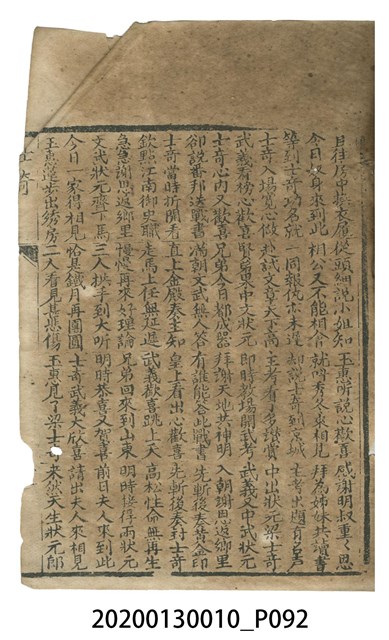 日往房中換衣屋從頭細説小姐知玉惠听説心歡喜感謝明叔重々恩
今日起身來到此相公又不能相合就叫秀冬來相見拜為姊妹共讀書
等到士奇功名就一同報仇也未遲却説士奇到京城士考出題有名声
士奇入場寬心做赴試文章天下高主考看了多讚賞中出狀元梁士奇
武義看榜心歡喜賢東中文狀元即時教場開武考武義又中武狀元
士奇心内又歡喜兄弟今日都成器拜謝天地共神明入朝謝恩返鄉里
卻説番邦送戰書滿朝文武無人答有誰能答此戰書先斬後奏黃金印
士奇當時折開看直上金殿奏主知皇上看出心歡喜先斬後奏封士奇
欽點江南御史職走馬上任無延遲武義歡喜跳上天高松性命無再生
急急謝恩返鄉里慢慢再來好理論兄弟回來到山東明時接得兩狀元
文武狀元齊下馬三人携手到大听明時恭喜又賀喜前日夫人來到此
今日一家得相見恰是鐵月再團圓士奇武義大欣喜請出夫人來相見
玉惠運步出綉房二人看見悲傷玉惠見了梁士奇來然天生狀元郎
20200130010_P092